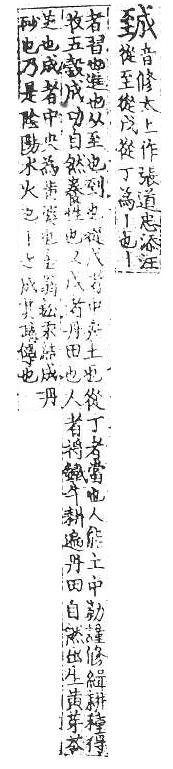 音修太上作張道忠添注
從至從戊從丁為丨也丨
者習也進也从至也到也從戊者中央土也從丁者當也人能土中勤謹修緝耕種得
收五穀成功自然養性也又戊者丹田也人者將鐵牛耕遍丹田自然也生黃芽苓
也成者中央為黃也來結成丹
砂也乃是陰陽水火也丨成也